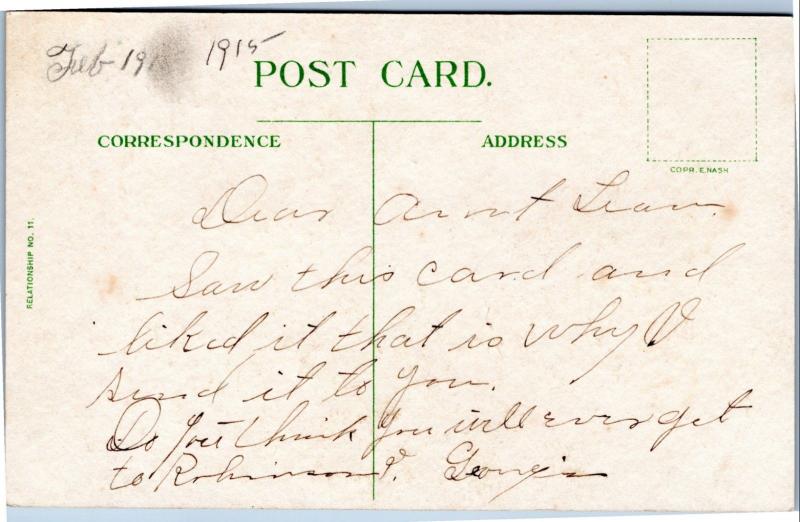 Feb 19 1915
POST CARD.
CORRESPONDENCE
ADDRESS
COPR. E. NASH
RELATIONSHIP NO. 11.
Dear Aunt
Saw this card and
liked it that is why I
send it to you.
Do you think you will ever get
to Robinson?. Georgia